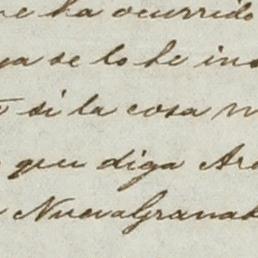 ha ocurrido
ya se lo he
si la cosa
que diga
Nueva Grana